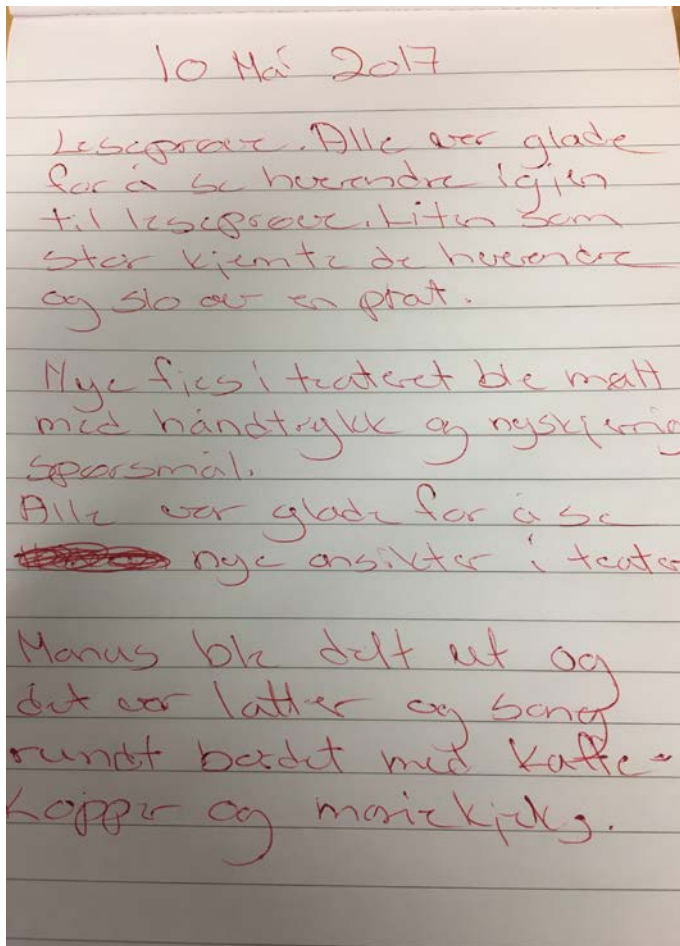 10 Mai 2017
Leseprøve. Alle var glade
for å se hverandre igjen
til leseprøve. Liten som
stor kjemte de hverandre
og slo av en prat.
Nye fjes i teateret ble møtt
med håndtrykk og nyskjerrig
spørsmål.
Alle var glade for å se
nye ansikter i teater
Manus ble delt ut og
det var latter og sang
rundt bordet med kaffe-
kopper og mariekjeks.